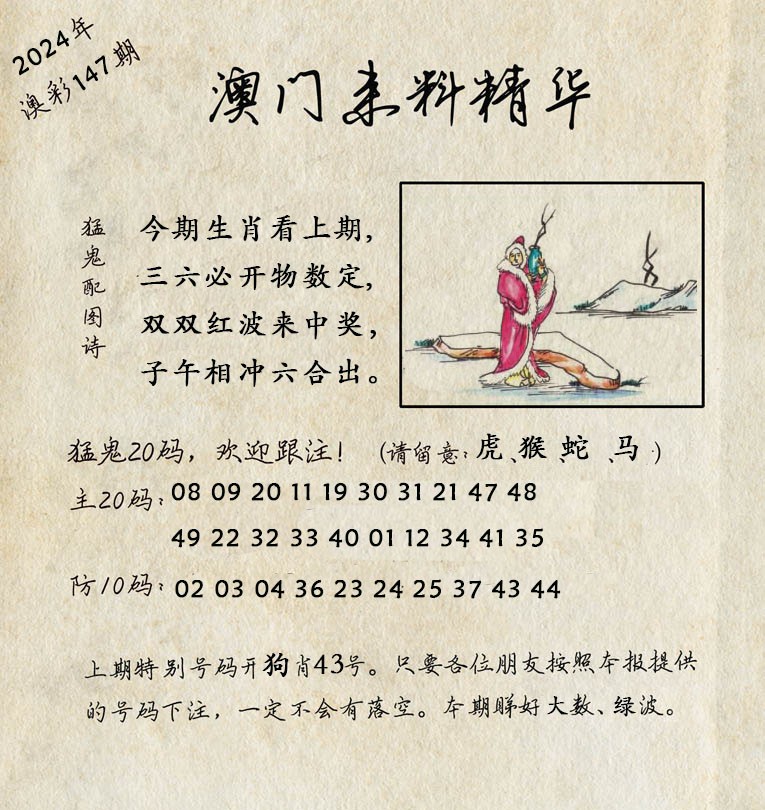 2024年
澳彩147期
澳门来料精华
猛鬼配图诗
今期生肖看上期，
三六必开物数定，
双双红波来中奖，
子午相冲六合出。
猛鬼20码，欢迎跟注！（请留意：虎、猴、蛇、马）
主20码：08 09 20 11 19 30 31 21 47 48
49 22 32 33 40 01 12 34 41 35
防10码：02 03 04 36 23 24 25 37 43 44
上期特别号码开狗肖43号。只要各位朋友按照本报提供
的号码下注，一定不会有落空。本期睇好大数、绿波。